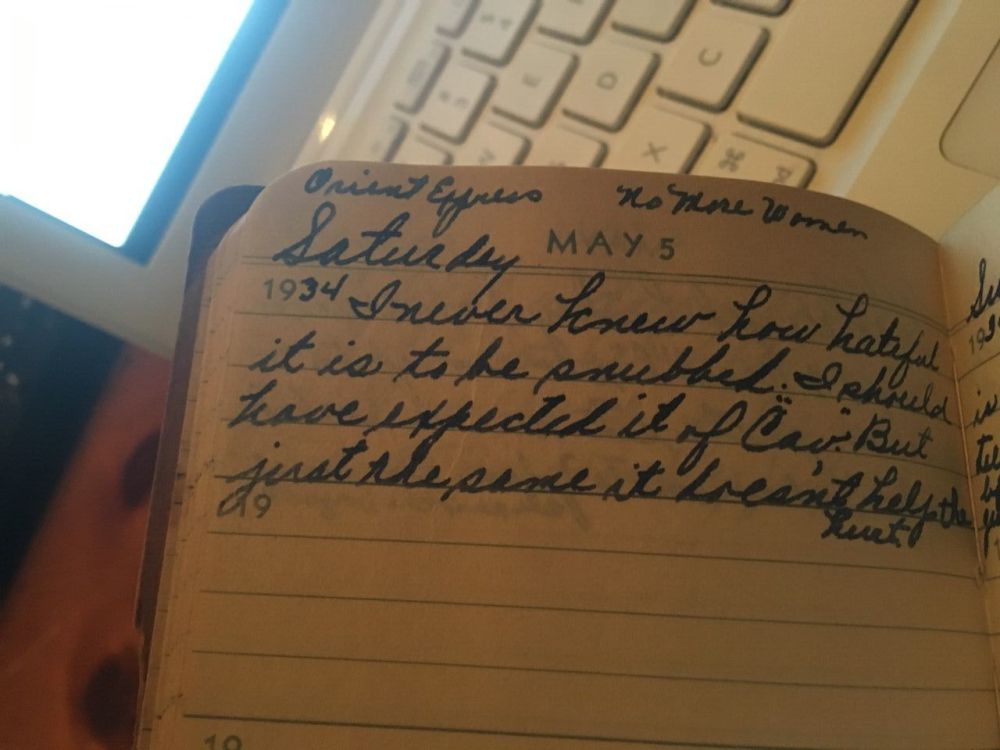 E
D
C
X
⌘
Orient Express No More Women
Saturday MAY 5
1934 I never knew how hateful
it is to be snubbed. I should
have expected it of "Cav." But
just the same it doesn't help the
hurt.
19
19